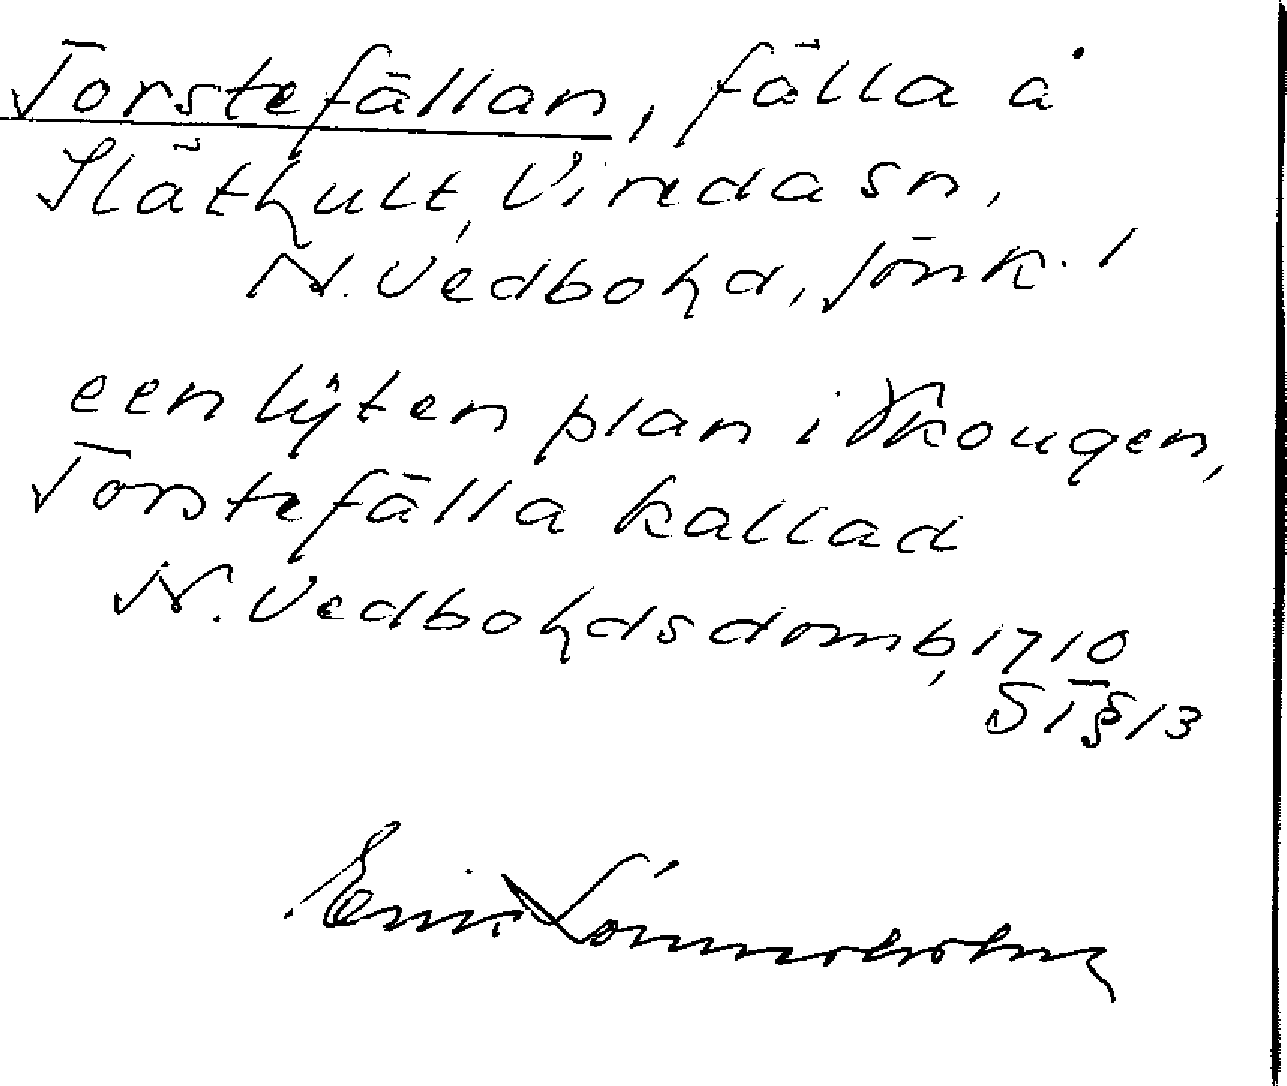 Torstefällan, fälla å
Släthult, Vireda sn,
N. Vedbo hd, Jönk. l
een lÿten plan i Skougen,
Torstefälla kallad
N. Vedbo hds domb, 1710
ST § 13